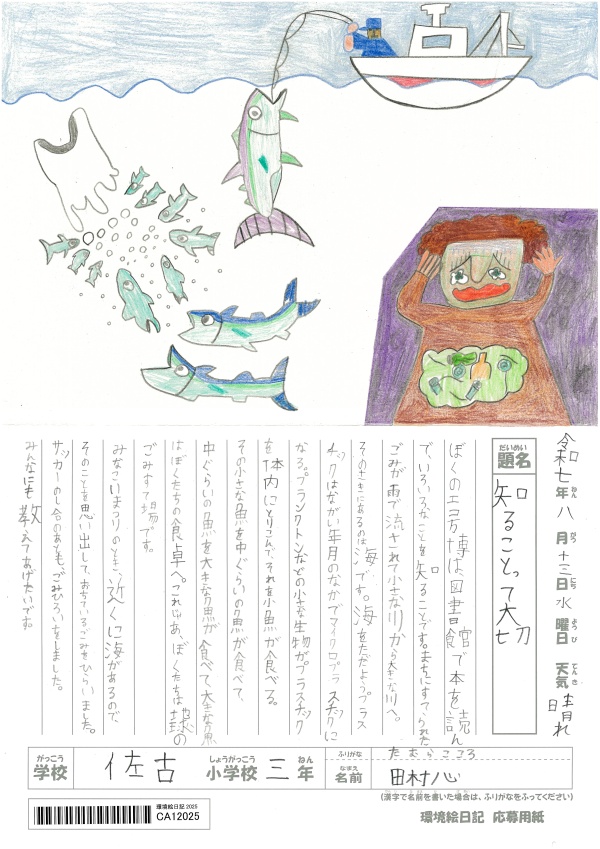 令和七年八月十三日水曜日 天気 晴れ
だいめい
題名
知ることって大切
ぼくのエコ万博は図書館で本を読ん
で、いろいろなことを知ることです。まちにすてられた
ごみが雨で流されて小さな川から大きな川へ。
そのさきにあるのは海です。海をただようプラス
チックはながい年月のなかでマイクロプラスチックに
なる。プランクトンなどの小さな生物がプラスチック
を体内にとりこんで、それを小魚が食べる。
その小さな魚を中ぐらいの魚が食べて、
中ぐらいの魚を大きな魚が食べて、大きな魚
はぼくたちの食卓へ。これじゃあ、ぼくたちは地球の
ごみすて場です。
みなこいまつりのとき、近くに海があるので、
そのことを思い出して、おちているごみをひろいました。
サッカーのし合のあとも、ごみひろいをしました。
みんなにも教えてあげたいです。
がっこう しょうがっこう ねん
学校 佐古 小学校 三年
ふりがな たむらこころ
なまえ
名前 田村心
(漢字で名前を書いた場合は、ふりがなをふってください)
環境絵日記 2025
CA12025
環境絵日記 応募用紙